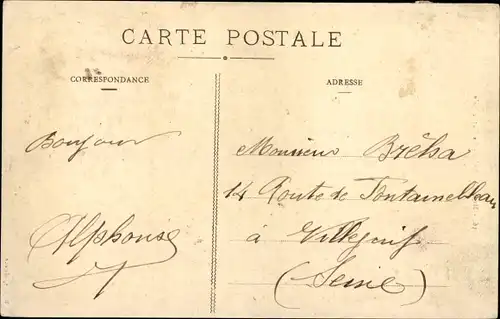 CARTE POSTALE
CORRESPONDANCE
ADRESSE
Bonjour
Alphonse
Monsieur Bréha
14 Route de Fontainebleau
à Villejuif
(Seine)